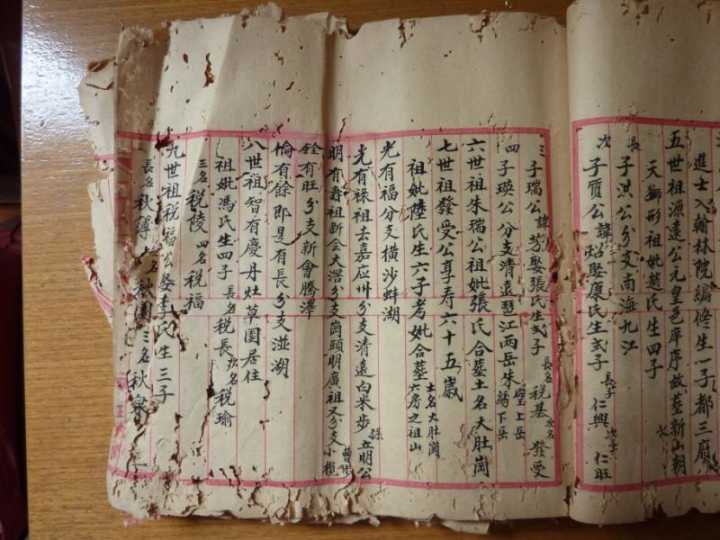 進士入翰林院編修生一子都三府
五世祖源遠公元皇邑庠序故墓新山朝
天獅形祖妣趙氏生四子
長子淇公分支南海九江
次子質公諱娶康氏生弍子長子仁興次子仁旺
三子瑞公諱芳娶張氏生弍子長名税基次名發受
四子瑛公分支清遠琶江两岳朱
六世祖朱瑞公祖妣張氏合墓土名大肚崗
七世祖發受公享寿六十五歲
祖妣陸氏生六子考妣合墓土名大肚崗六房之祖山
光有福分支橫沙蚌湖
光有祿祖去嘉應州分支清遠白米步
明有壽祖新会大滘分支崗頭明廣祖又分支小欖
銓有旺分支新會騰澤
倫有餘即是有長分支湴湖
八世祖智有慶丹灶草園居住
祖妣馮氏生四子長名税長次名税瑜
三名税陵四名税福
九世祖税福公娶李氏生三子
長名秋三名秋